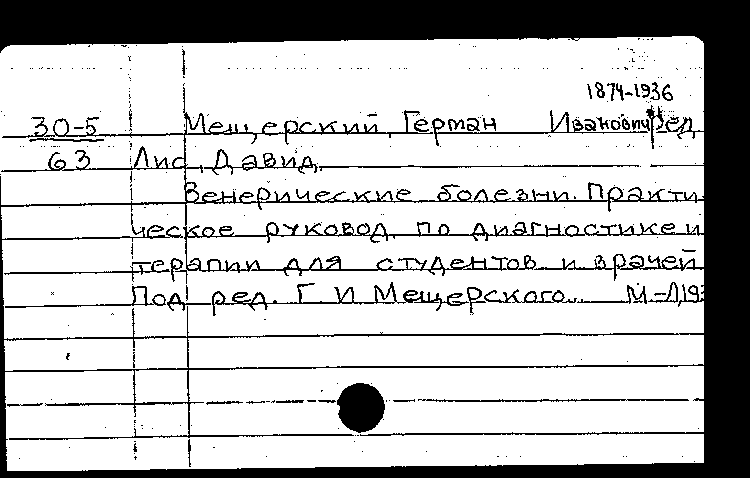 1874-1936
30-5 Мещерский, Герман Иванович, ред.
63 Лис, Давид.
Венерические болезни. Практи-
ческое руковод. по диагностике и
терапии для студентов и врачей
Под ред. Г. И. Мещерского. М-Л,193